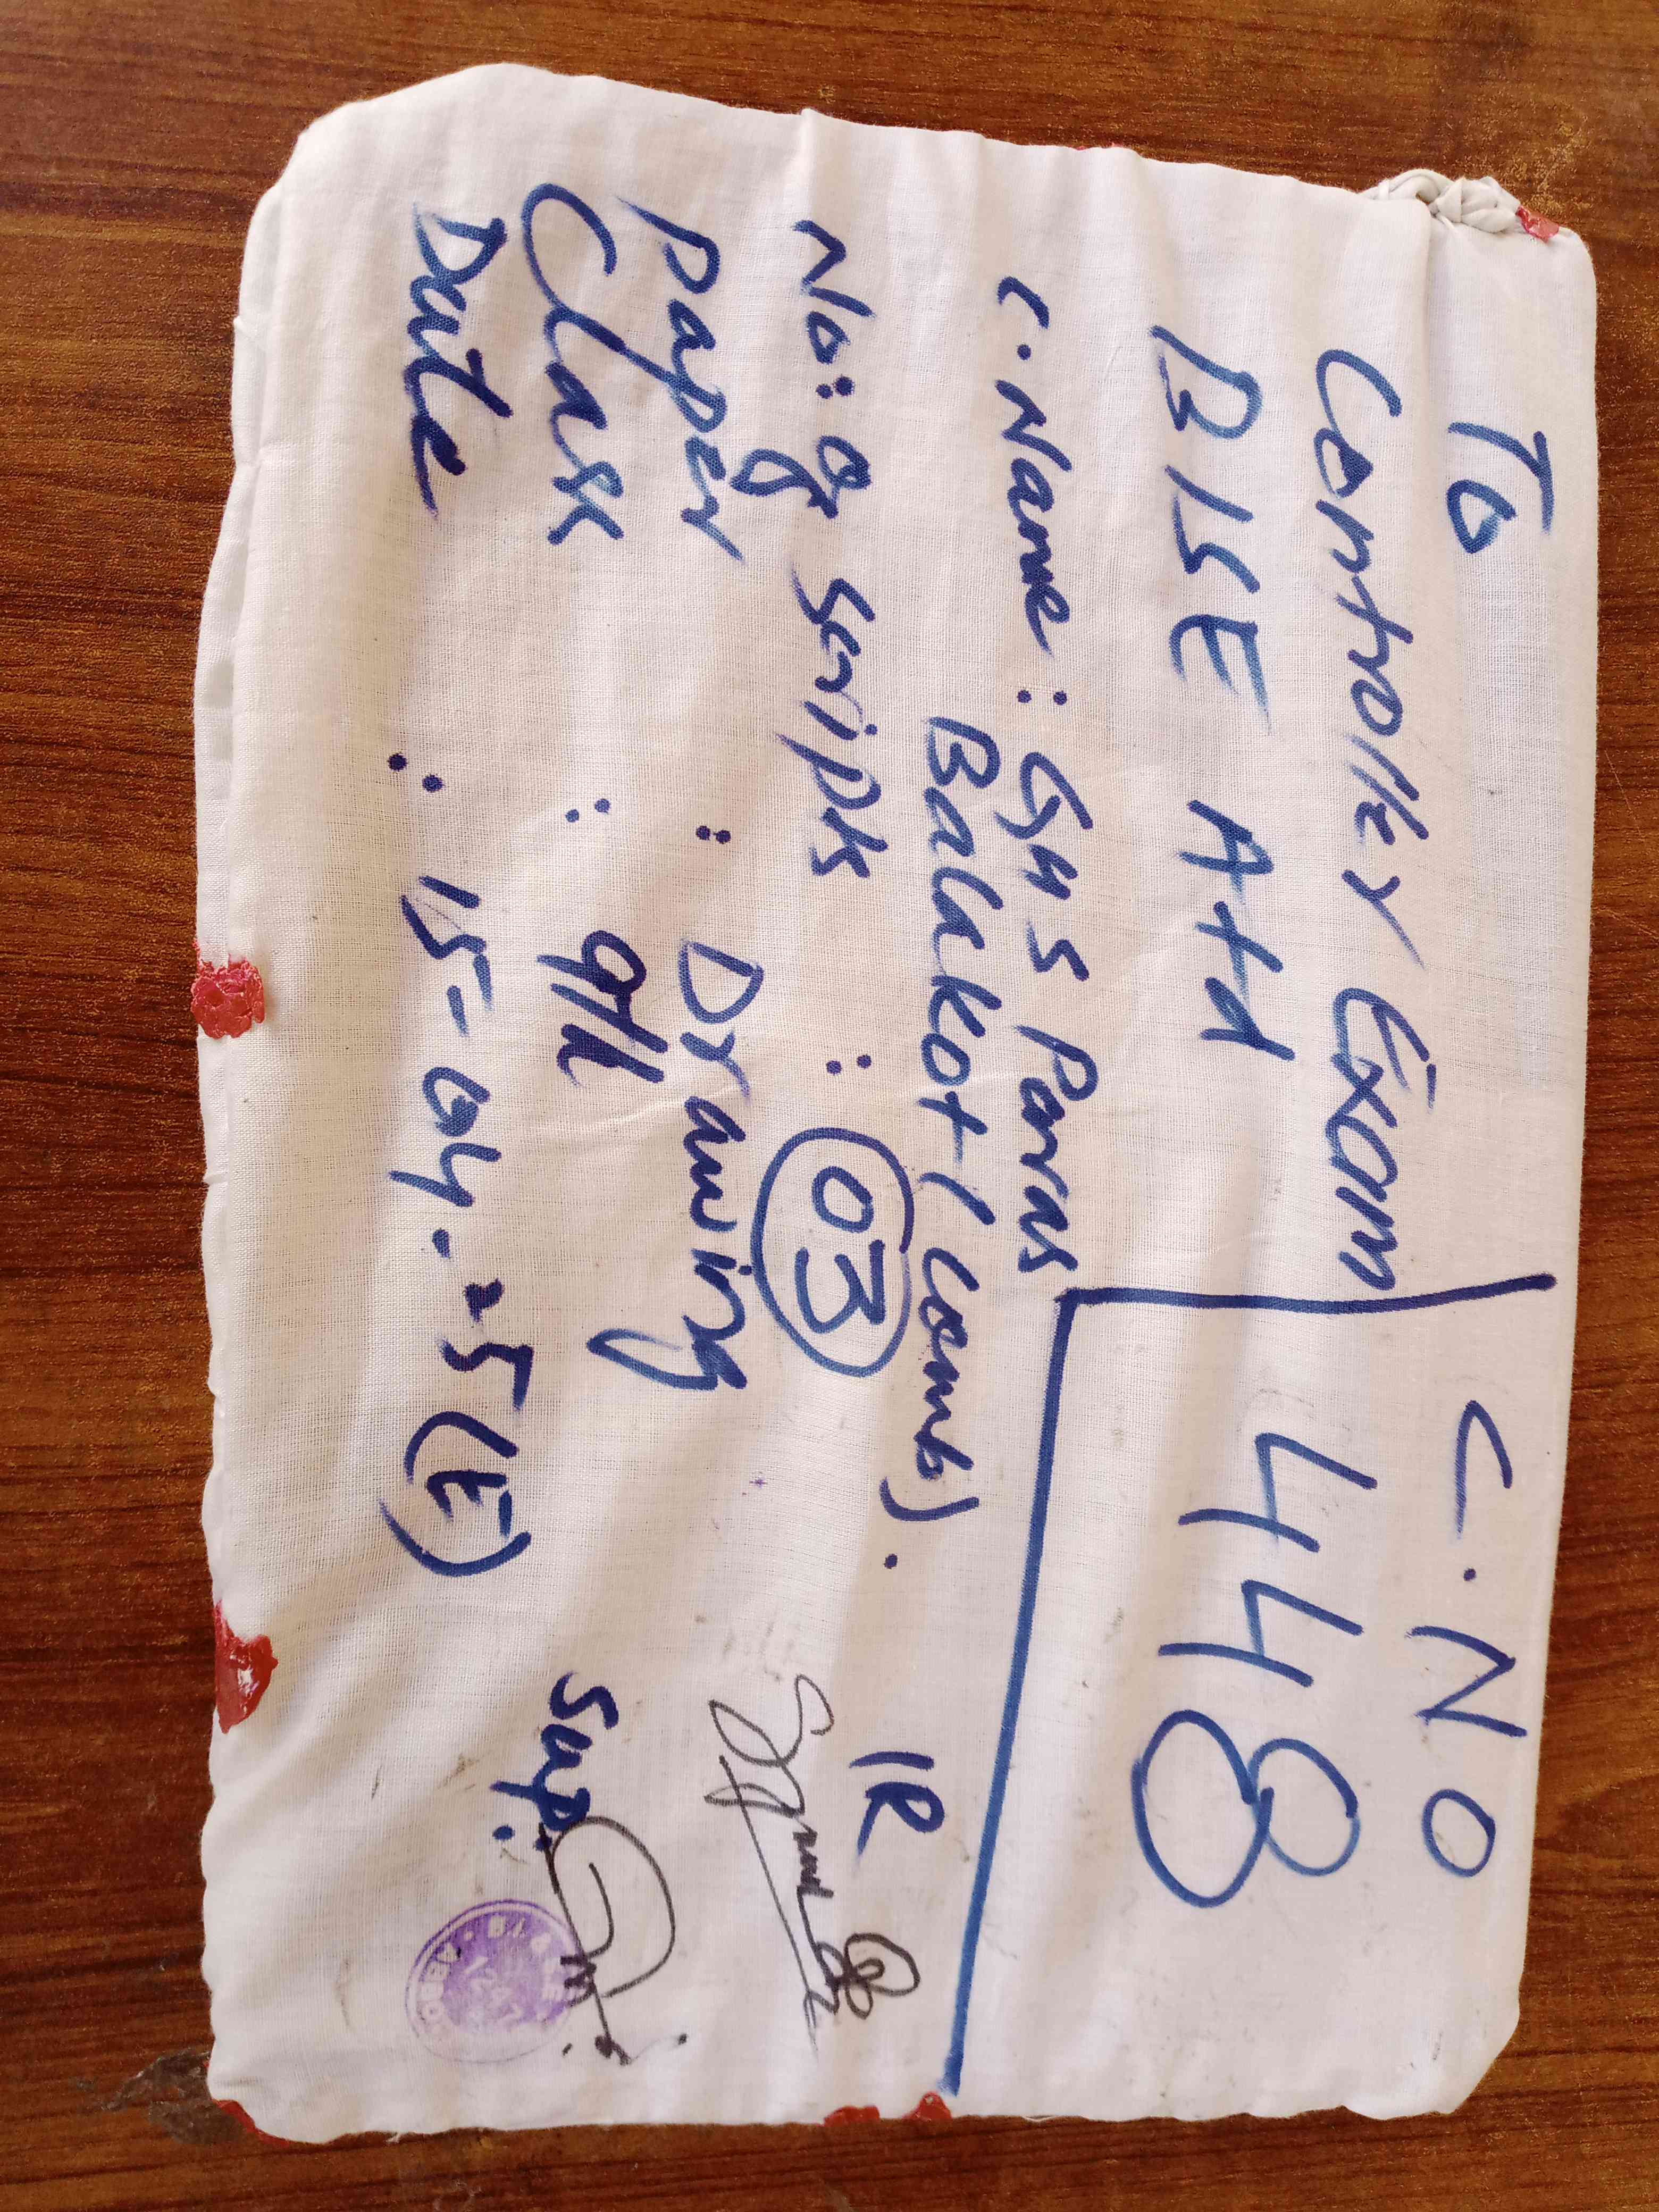 To
Controller Exam
BISE Atd
C.No
448
C.Name : GHS Paras
Balakot (Comb).
No: of Scripts : 03
Paper : Drawing
Class : 9th
Date : 15-04-25(E)
IR
Sup: